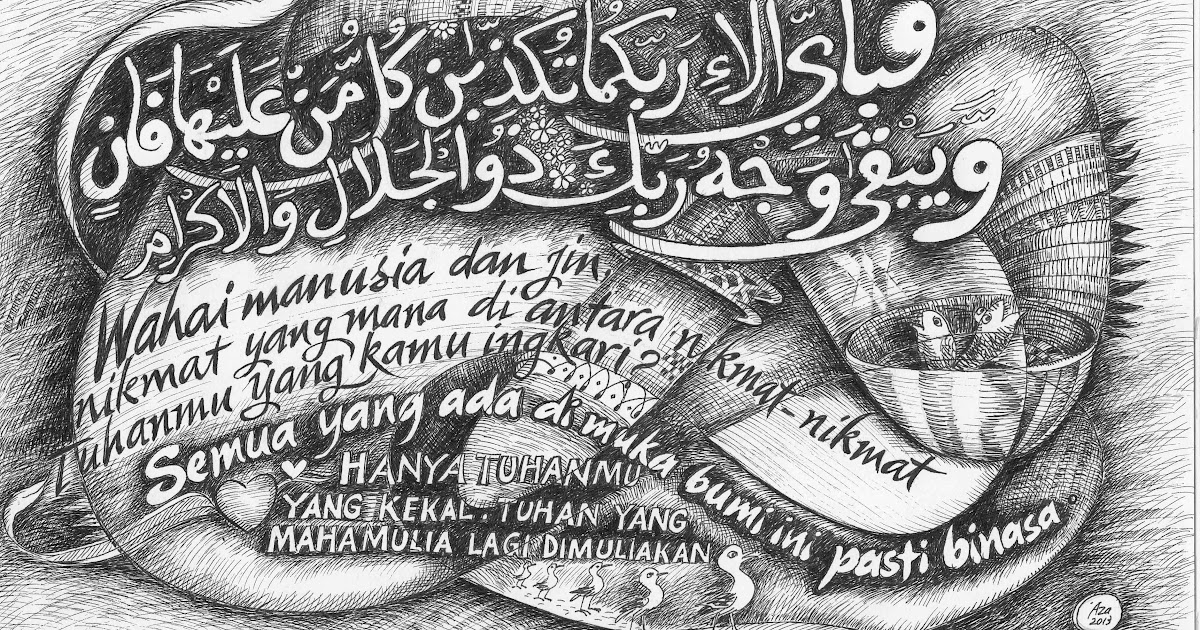 فَبِأَيِّ آلَاءِ رَبِّكُمَا تُكَذِّبٰنِ كُلُّ مَنْ عَلَيْهَا فَانٍ
وَيَبْقٰى وَجْهُ رَبِّكَ ذُوالْجَلَالِ وَالْاِكْرَامِ
Wahai manusia dan jin,
nikmat yang mana di antara nikmat-nikmat
Tuhanmu yang kamu ingkari?
Semua yang ada di muka bumi ini pasti binasa
HANYA TUHANMU
YANG KEKAL. TUHAN YANG
MAHAMULIA LAGI DIMULIAKAN
Aza
2013